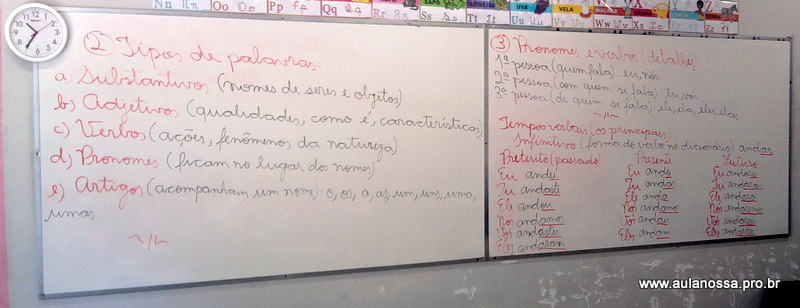 Nn Nn Oo Oo Pp Pp Qq Rr Rr Ss Ss Tt Tt Uu Uu Vv Vv Ww Ww Xx Xx Zz
UVA VELA
② Tipos de palavras:
a) Substantivos (nomes de seres e objetos)
b) Adjetivos (qualidades, como é, características)
c) Verbos (ações, fenômenos da natureza)
d) Pronomes (ficam no lugar dos nomes)
e) Artigos (acompanham um nome): o, os, a, as, um, uns, uma,
umas
③ Pronomes e verbos (detalhes):
1ª pessoa (quem fala): eu, nós
2ª pessoa (com quem se fala): tu, vós
3ª pessoa (de quem se fala): ele, ela, eles, elas
Tempos verbais (os principais):
Infinitivo (forma do verbo no dicionário): andar
Pretérito (passado) Presente Futuro
Eu andei Eu ando Eu andarei
Tu andaste Tu andas Tu andarás
Ele andou Ele anda Ele andará
Nós andamos Nós andamos Nós andaremos
Vós andastes Vós andais Vós andareis
Eles andaram Eles andam Eles andarão
www.aulanossa.pro.br